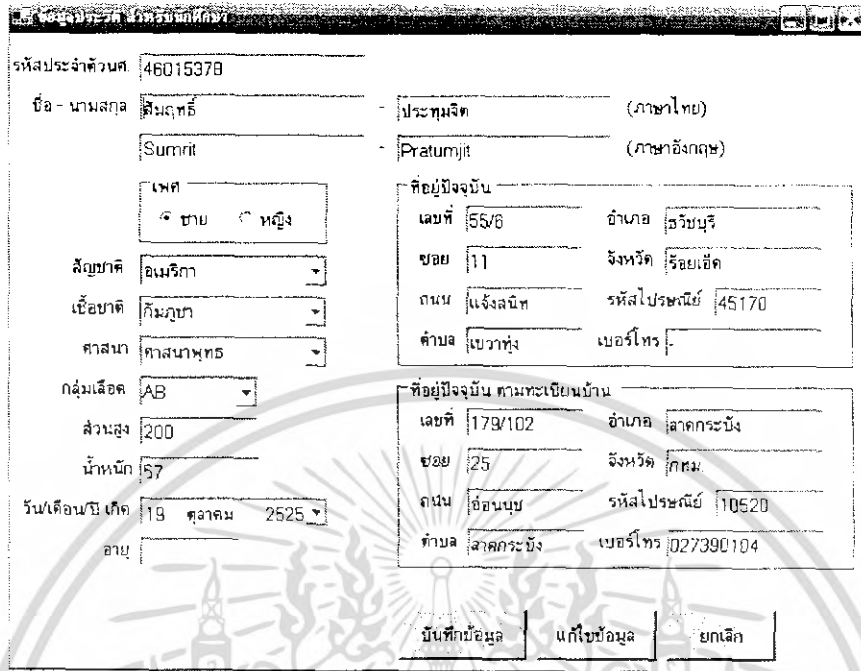 ข้อมูลประวัติ สำหรับนักศึกษา
รหัสประจำตัวนศ. 46015379
ชื่อ - นามสกุล สัมฤทธิ์ - ประทุมจิต (ภาษาไทย)
Sumrit - Pratumjit (ภาษาอังกฤษ)
เพศ
ชาย หญิง
สัญชาติ อเมริกา
เชื้อชาติ กัมภูชา
ศาสนา ศาสนาพุทธ
กลุ่มเลือด AB
ส่วนสูง 200
น้ำหนัก 57
วัน/เดือน/ปี เกิด 19 ตุลาคม 2525
อายุ
ที่อยู่ปัจจุบัน
เลขที่ 55/6 อำเภอ ธวัชบุรี
ซอย 11 จังหวัด ร้อยเอ็ด
ถนน แจ้งสนิท รหัสไปรษณีย์ 45170
ตำบล เขวาทุ่ง เบอร์โทร -
ที่อยู่ปัจจุบัน ตามทะเบียนบ้าน
เลขที่ 179/102 อำเภอ ลาดกระบัง
ซอย 25 จังหวัด กทม.
ถนน อ่อนนุช รหัสไปรษณีย์ 10520
ตำบล ลาดกระบัง เบอร์โทร 027390104
บันทึกข้อมูล แก้ไขข้อมูล ยกเลิก